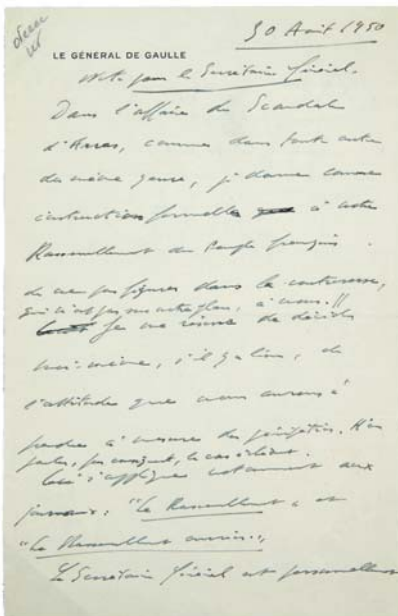 30 Août 1950
LE GÉNÉRAL DE GAULLE
Note pour le Secrétaire Général.
Dans l'affaire du Scandale
d'Arras, comme dans toute autre
du même genre, je donne comme
instruction formelle à notre
Rassemblement du Peuple français
de ne pas figurer dans la controverse,
qui n'est pas sur notre plan, à nous.
Je me réserve de décider
moi-même, s'il y a lieu, de
l'attitude que nous aurons à
prendre à mesure des
parler, par conséquent, le cas échéant.
Ceci s'applique notamment aux
journaux : "Le Rassemblement" et
"Le Rassemblement ouvrier".
Le Secrétaire Général est personnellement